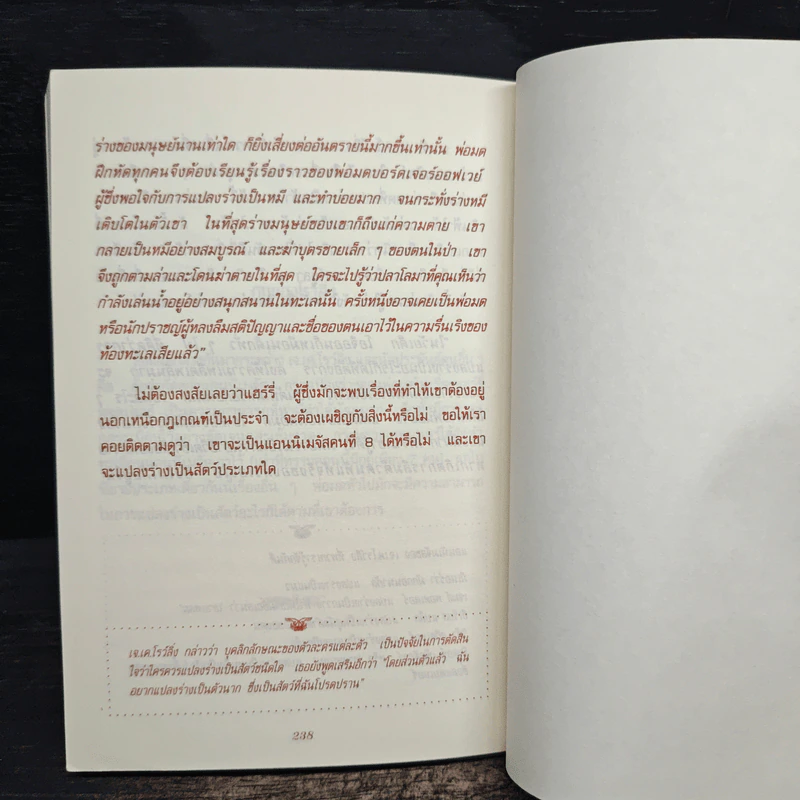 ร่างของมนุษย์นานเท่าใด ก็ยิ่งเสี่ยงต่ออันตรายนี้มากขึ้นเท่านั้น พ่อมด
ฝึกหัดทุกคนจึงต้องเรียนรู้เรื่องราวของพ่อมดบอร์ดเจอร์ออฟเวย์
ผู้ซึ่งพอใจกับการแปลงร่างเป็นหมี และทำบ่อยมาก จนกระทั่งร่างหมี
เติบโตในตัวเขา ในที่สุดร่างมนุษย์ของเขาก็ถึงแก่ความตาย เขา
กลายเป็นหมีอย่างสมบูรณ์ และฆ่าบุตรชายเล็ก ๆ ของตนในป่า เขา
จึงถูกตามล่าและโดนฆ่าตายในที่สุด ใครจะไปรู้ว่าปลาโลมาที่คุณเห็นว่า
กำลังเล่นน้ำอยู่อย่างสนุกสนานในทะเลนั้น ครั้งหนึ่งอาจเคยเป็นพ่อมด
หรือนักปราชญ์ผู้หลงลืมสติปัญญาและชื่อของตนเอาไว้ในความรื่นเริงของ
ท้องทะเลเสียแล้ว"
ไม่ต้องสงสัยเลยว่าแฮร์รี่ ผู้ซึ่งมักจะพบเรื่องที่ทำให้เขาต้องอยู่
นอกเหนือกฎเกณฑ์เป็นประจำ จะต้องเผชิญกับสิ่งนี้หรือไม่ ขอให้เรา
คอยติดตามดูว่า เขาจะเป็นแอนนิเมจัสคนที่ 8 ได้หรือไม่ และเขา
จะแปลงร่างเป็นสัตว์ประเภทใด
เจ.เค.โรว์ลิ่ง กล่าวว่า บุคลิกลักษณะของตัวละครแต่ละตัว เป็นปัจจัยในการตัดสิน
ใจว่าใครควรแปลงร่างเป็นสัตว์ชนิดใด เธอยังพูดเสริมอีกว่า "โดยส่วนตัวแล้ว ฉัน
อยากแปลงร่างเป็นตัวนาก ซึ่งเป็นสัตว์ที่ฉันโปรดปราน"
238